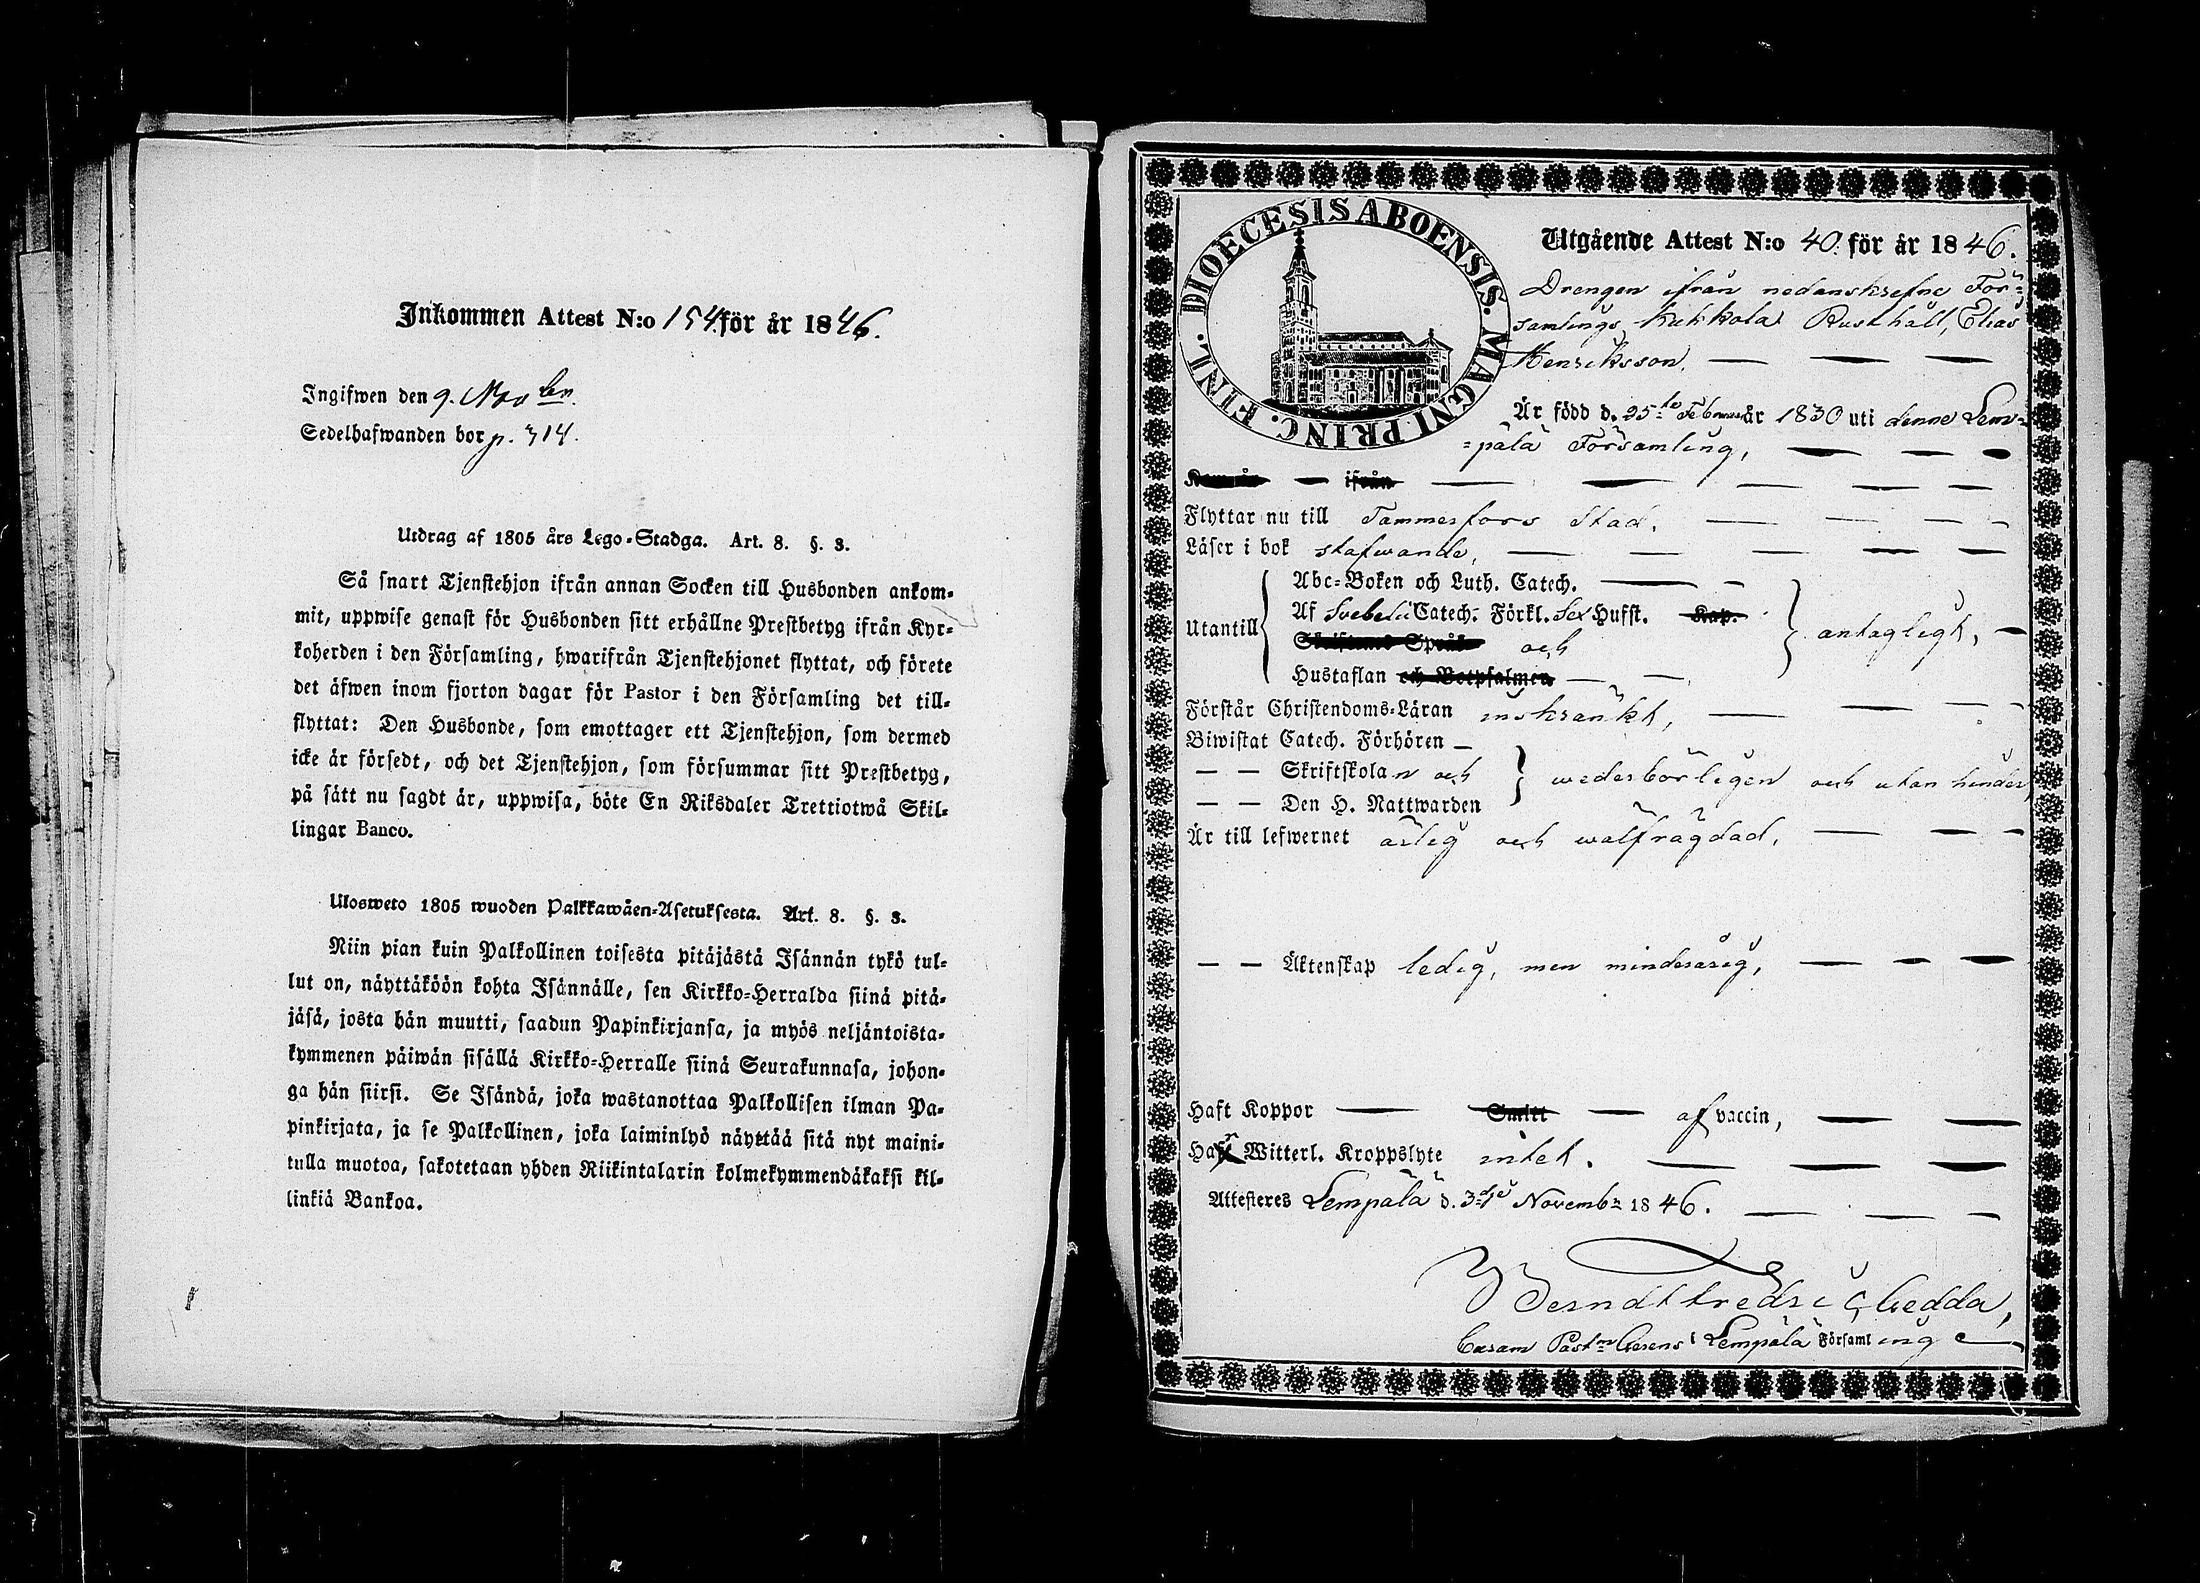 Inkommen Attest N:o 154. för år 1846.
Ingifwen den 9. Novben.
Sedelhafwanden bor p. 314.
Utdrag af 1805 års Lego-Stadga. Art. 8. §. 3.
Så snart Tjenstehjon ifrån annan Socken till Husbonden ankom-
mit, uppwise genast för Husbonden sitt erhållne Prestbetyg ifrån Kyr-
koherden i den Församling, hwarifrån Tjenstehjonet flyttat, och förete
det äfwen inom fjorton dagar för Pastor i den Församling det till-
flyttat: Den Husbonde, som emottager ett Tjenstehjon, som dermed
icke är försedt, och det Tjenstehjon, som försummar sitt Prestbetyg,
på sätt nu sagdt är, uppwisa, böte En Riksdaler Trettiotwå Skil-
lingar Banco.
Ulosweto 1805 wuoden Palkkawäen-Asetuksesta. Art. 8. §. 3.
Niin pian kuin Palkollinen toisesta pitäjästä Isännän tykö tul-
lut on, näyttäköön kohta Isännälle, sen Kirkko-Herralda siinä pitä-
jäsä, josta hän muutti, saadun Papinkirjansa, ja myös neljäntoista-
kymmenen päiwän sisällä Kirkko-Herralle siinä Seurakunnasa, johon-
ga hän siirsi. Se Isändä, joka wastanottaa Palkollisen ilman Pa-
pinkirjata, ja se Palkollinen, joka laiminlyö näyttää sitä nyt maini-
tulla muotoa, sakotetaan yhden Riikintalarin kolmekymmendäkaksi kil-
linkiä Bankoa.
DIOECESIS ABOENSIS. MAGNI PRINC. FINL.
Utgående Attest N:o 40. för år 1846.
Drengen ifrån nedanskrefne För-
samlings Kukkola Rusthåll, Elias
Henriksson,
Är född d. 25te Februari år 1830 uti denne Lem-
=pälä Församling,
Kom år — ifrån
Flyttar nu till Tammerfors Stad.
Läser i bok stafwande,
Abc-Boken och Luth. Catech.
Utantill Af Svebelii Catech. Förkl. Sex Hufst. Kap. antagligt,
Skriftenes Språk och
Hustaflan och Botpsalmen
Förstår Christendoms-Läran inskränkt,
Biwistat Catech. Förhören
— — Skriftskolan och wederbörligen och utan hinder,
— — Den H. Nattwarden
Är till lefwernet ärlig och wälfrägdad,
— — Äktenskap ledig, men minderårig,
Haft Koppor — Smitt — af vaccin,
Har Witterl. Kroppslyte intet.
Attesteres Lempälä d. 3dje Novembr 1846.
Berndt Fredric Gedda,
Coram Past:n Gerens i Lempälä Församling